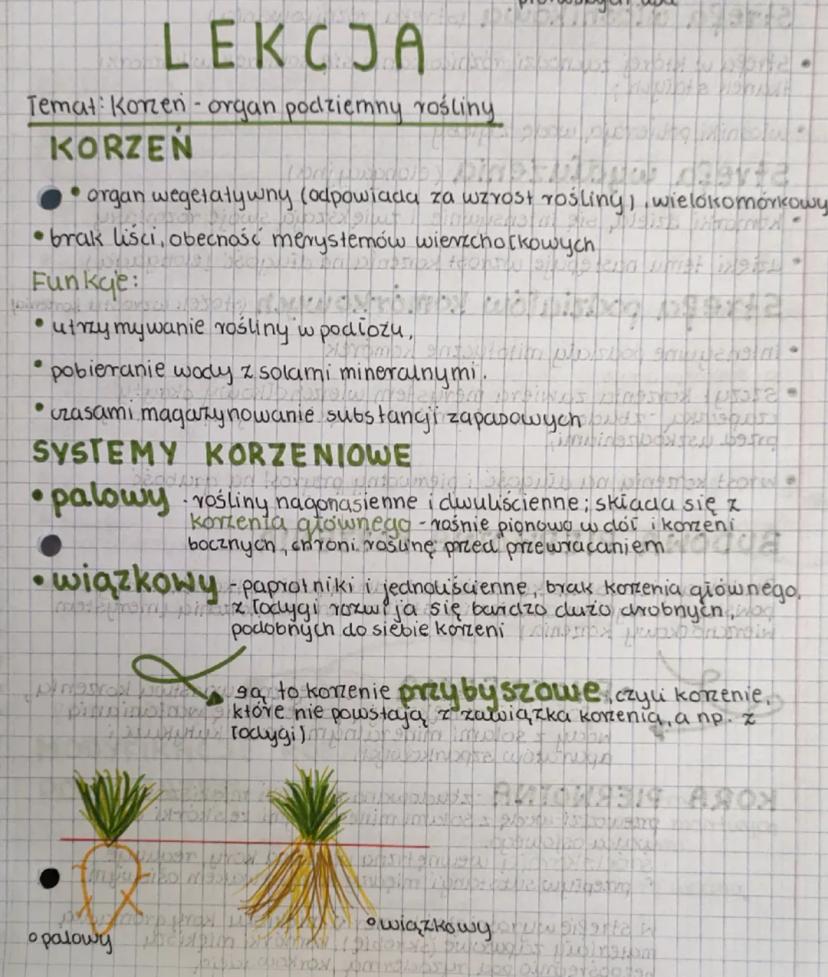 LEKCJA
Temat: Korzeń - organ podziemny rośliny
KORZEŃ
• organ wegetatywny (odpowiada za wzrost rośliny), wielokomórkowy
• brak liści, obecność merystemów wierzchołkowych
Funkcje:
• utrzymywanie rośliny w podłożu,
• pobieranie wody z solami mineralnymi.
• czasami magazynowanie substancji zapasowych
SYSTEMY KORZENIOWE
• palowy - rośliny nagonasienne i dwuliścienne; składa się z
korzenia głównego - rośnie pionowo w dół i korzeni
bocznych, chroni roślinę przed przewracaniem
• wiązkowy - paprotniki i jednoliścienne, brak korzenia głównego,
z łodygi rozwija się bardzo dużo drobnych,
podobnych do siebie korzeni
są to korzenie przybyszowe, czyli korzenie,
które nie powstają z zawiązka korzenia, a np. z
łodygi)
palowy
wiązkowy